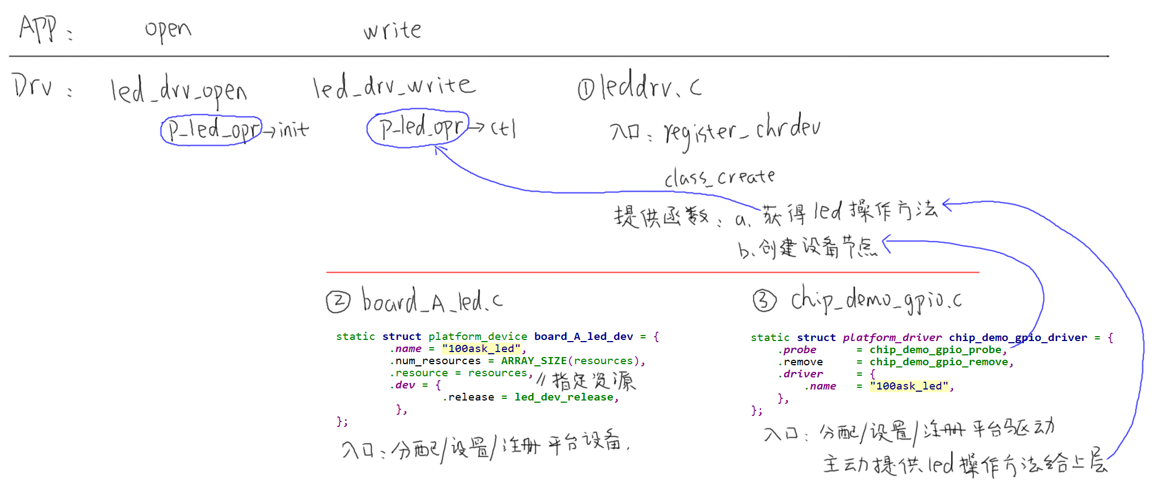 APP: open write
Drv: led_drv_open led_drv_write ①leddrv.c
p_led_opr→init p_led_opr→ctl 入口: register_chrdev
class_create
提供函数: a. 获得led操作方法
b. 创建设备节点
② board_A_led.c
static struct platform_device board_A_led_dev = {
.name = "100ask_led",
.num_resources = ARRAY_SIZE(resources),
.resource = resources, //指定资源
.dev = {
.release = led_dev_release,
},
};
入口: 分配/设置/注册 平台设备.
③ chip_demo_gpio.c
static struct platform_driver chip_demo_gpio_driver = {
.probe = chip_demo_gpio_probe,
.remove = chip_demo_gpio_remove,
.driver = {
.name = "100ask_led",
},
};
入口: 分配/设置/注册 平台驱动
主动提供led操作方法给上层